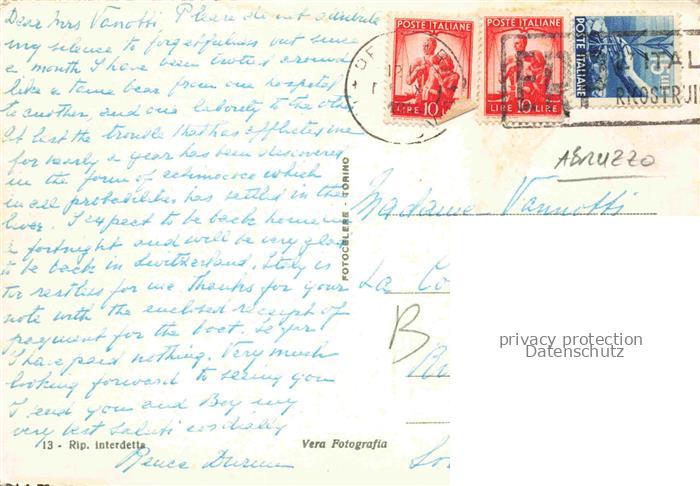 Dear Mrs Vanotti Please do not attribute
my silence to forgetfulness but since
a month I have been trotted around
like a tame bear from one hospital
to another, and one laboratory to the other
At last the trouble that has afflicted me
for nearly a year has been discovered
in the form of echinococco which
in all probabilities has settled in the
liver. I expect to be back home in
a fortnight and will be very glad
to be back in Switzerland. Italy is
too restless for me. Thanks for your
note with the enclosed receipt of
payment for the boat. So far
I have paid nothing. Very much
looking forward to seeing you
I send you and Boy my
very best saluti cordially
13 - Rip. interdetta
Vera Fotografia
FOTOCELERE TORINO
POSTE ITALIANE
LIRE 10
POSTE ITALIANE
LIRE 10 LIRE
POSTE ITALIANE
ITAL
RICOSTRUI
ABRUZZO
Madame Vannotti
La Co
B
privacy protection
Datenschutz